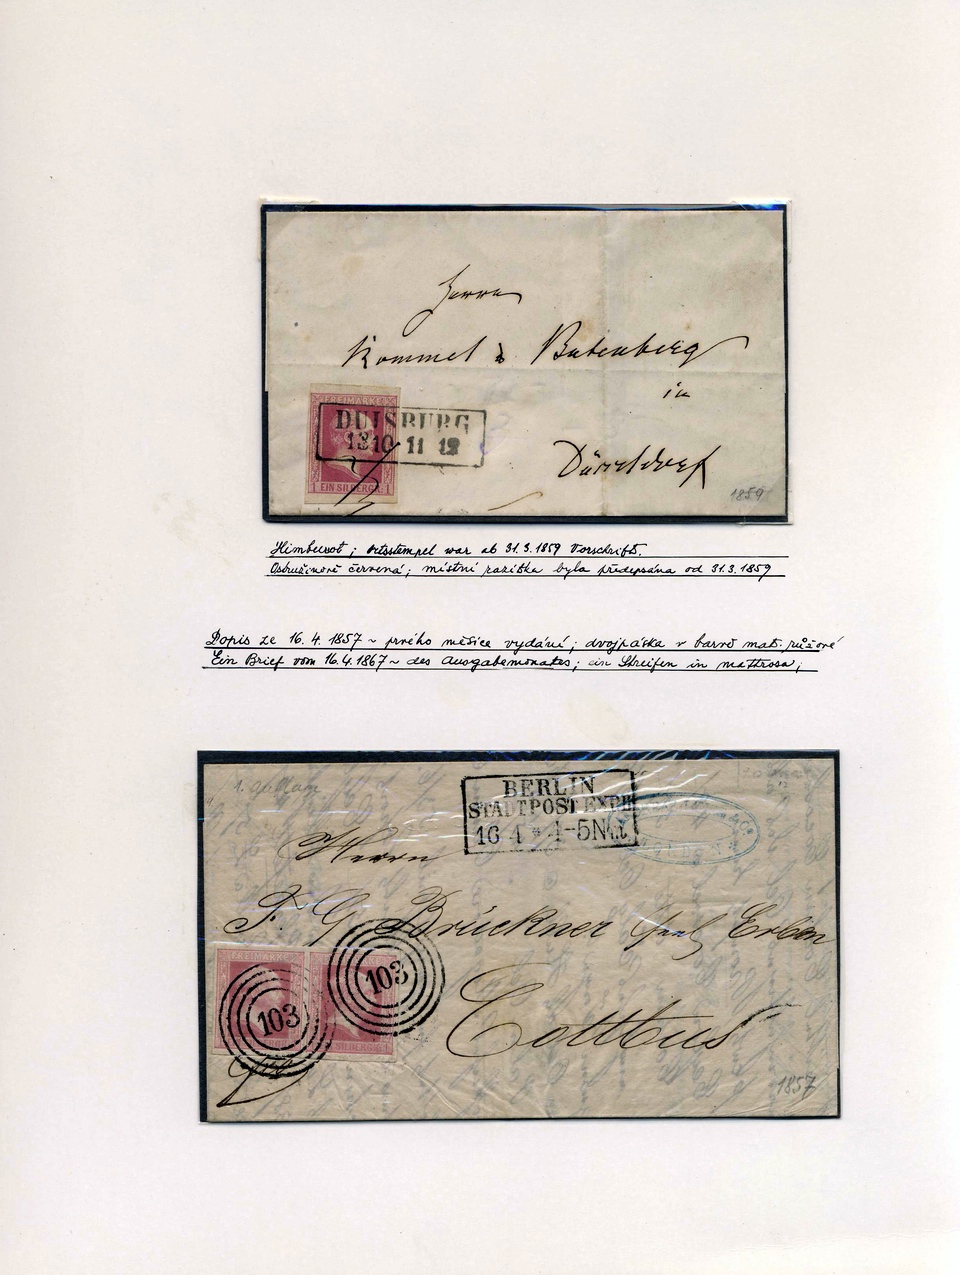 Herrn
Kommel & Butenberg
in
Düsseldorf
FREIMARKE
DUISBURG
13 10 11 12
1 EIN SILBERGR. 1
1859
Himbeerrot; Ortsstempel war ab 31.3.1859 Vorschrift.
Ostružinově červená; místní razítka byla předepsána od 31.3.1859
Dopis ze 16.4.1857 ~ prvého měsíce vydání; dvojpáska v barvě mat. růžové
Ein Brief vom 16.4.1867 ~ des Ausgabemonates; ein Streifen in mattrosa;
BERLIN
STADTPOST EXPD.
16 4 * 4-5 N.
Herrn
F. G. Brückner Erben
FREIMARKE
103 103
Cottbus
1857